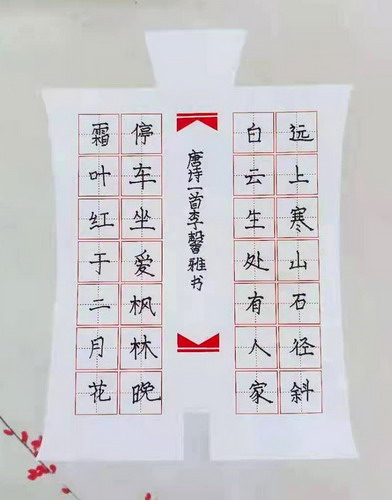 远上寒山石径斜
白云生处有人家
唐诗一首李馨雅书
停车坐爱枫林晚
霜叶红于二月花